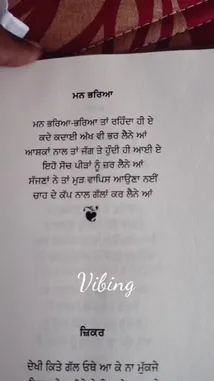 ਮਨ ਭਰਿਆ
ਮਨ ਭਰਿਆ-ਭਰਿਆ ਤਾਂ ਰਹਿੰਦਾ ਹੀ ਏ
ਕਦੇ ਕਦਾਈ ਅੱਖ ਵੀ ਭਰ ਲੈਨੇ ਆਂ
ਆਸ਼ਕਾਂ ਨਾਲ ਤਾਂ ਜੱਗ ਤੇ ਹੁੰਦੀ ਹੀ ਆਈ ਏ
ਇਹੋ ਸੋਚ ਪੀੜਾਂ ਨੂੰ ਜ਼ਰ ਲੈਨੇ ਆਂ
ਸੱਜਣਾਂ ਨੇ ਤਾਂ ਮੁੜ ਵਾਪਿਸ ਆਉਣਾ ਨਈਂ
ਚਾਹ ਦੇ ਕੱਪ ਨਾਲ ਗੱਲਾਂ ਕਰ ਲੈਨੇ ਆਂ
Vibing
ਜ਼ਿਕਰ
ਦੇਖੀ ਕਿਤੇ ਗੱਲ ਓਥੇ ਆ ਕੇ ਨਾ ਮੁੱਕਜੇ